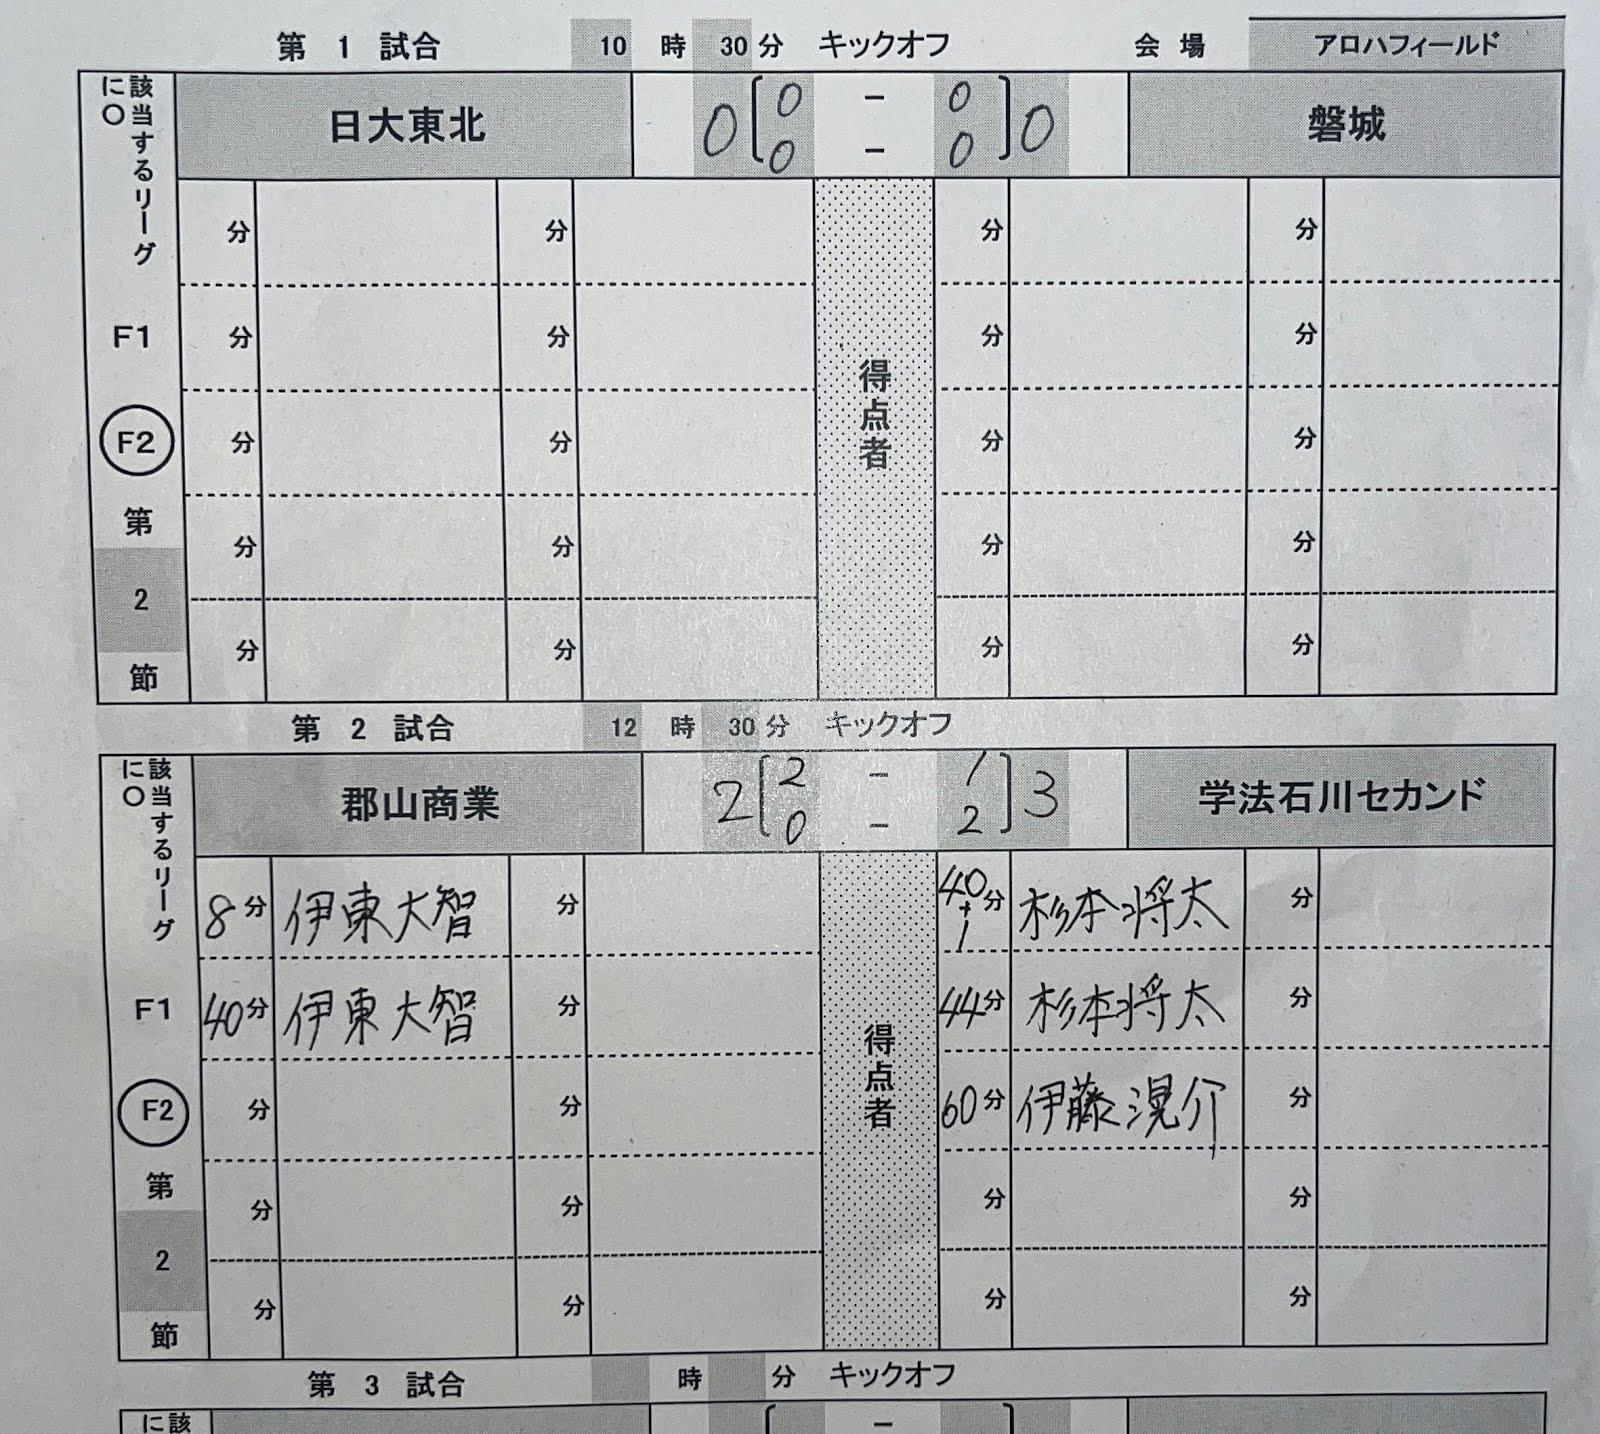 第 1 試合 10 時 30 分 キックオフ 会 場 アロハフィールド
該当するリーグに〇
日大東北 0 [ 0 - 0 ] 0 磐城
0 - 0
分 分 分 分
F1 分 分 分 分
F2 分 分 分 分
得点者
第
分 分 分 分
2
節 分 分 分 分
第 2 試合 12 時 30 分 キックオフ
該当するリーグに〇
郡山商業 2 [ 2 - 1 ] 3 学法石川セカンド
0 - 2
8分 伊東大智 分 40+1分 杉本将太 分
F1 40分 伊東大智 分 44分 杉本将太 分
得点者
F2 分 分 60分 伊藤滉介 分
第
分 分 分 分
2
節 分 分 分 分
第 3 試合 時 分 キックオフ
に該
[ - ]